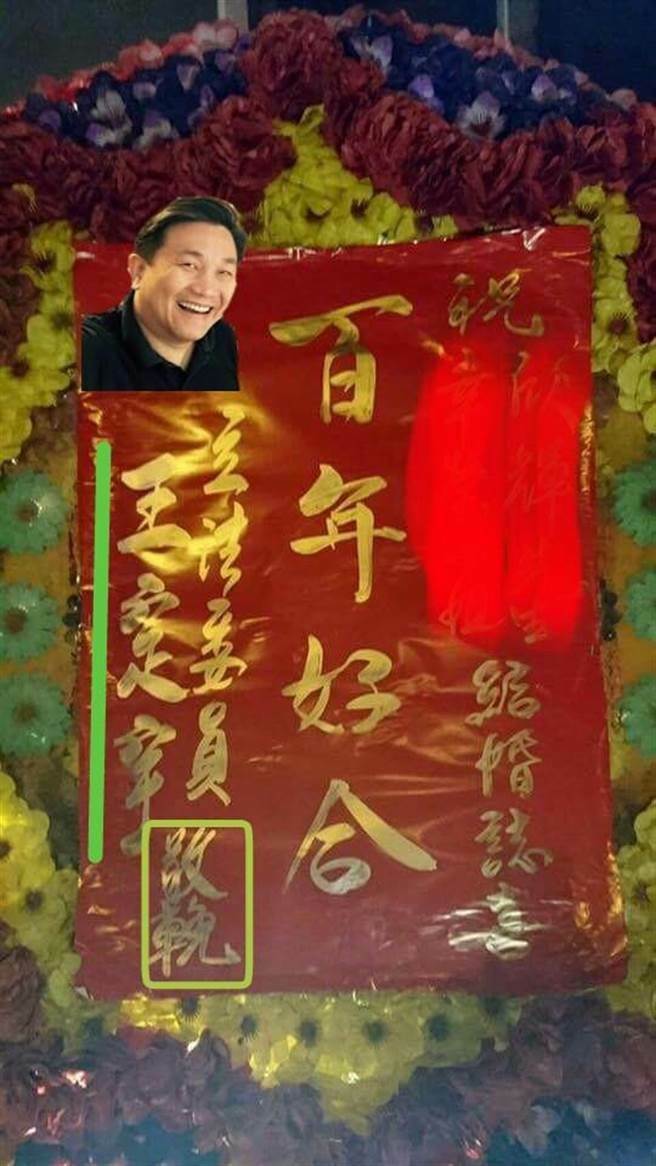 祝
結婚誌喜
百年好合
立法委員
王定宇
敬輓